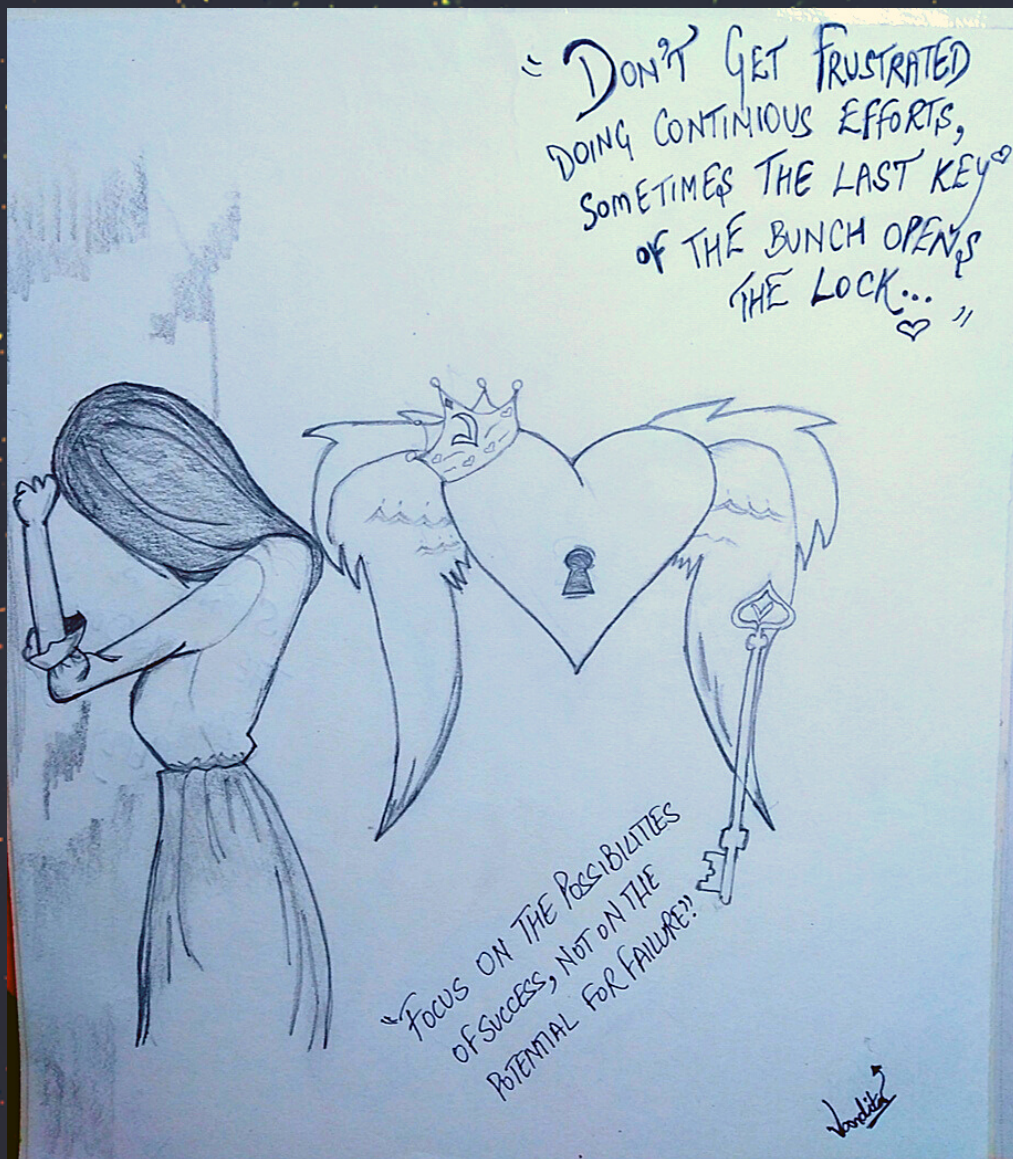 "DON'T GET FRUSTRATED
DOING CONTINIOUS EFFORTS,
SOMETIMES THE LAST KEY
OF THE BUNCH OPENS
THE LOCK..."
"FOCUS ON THE POSSIBILITIES
OF SUCCESS, NOT ON THE
POTENTIAL FOR FAILURE."
Vandita